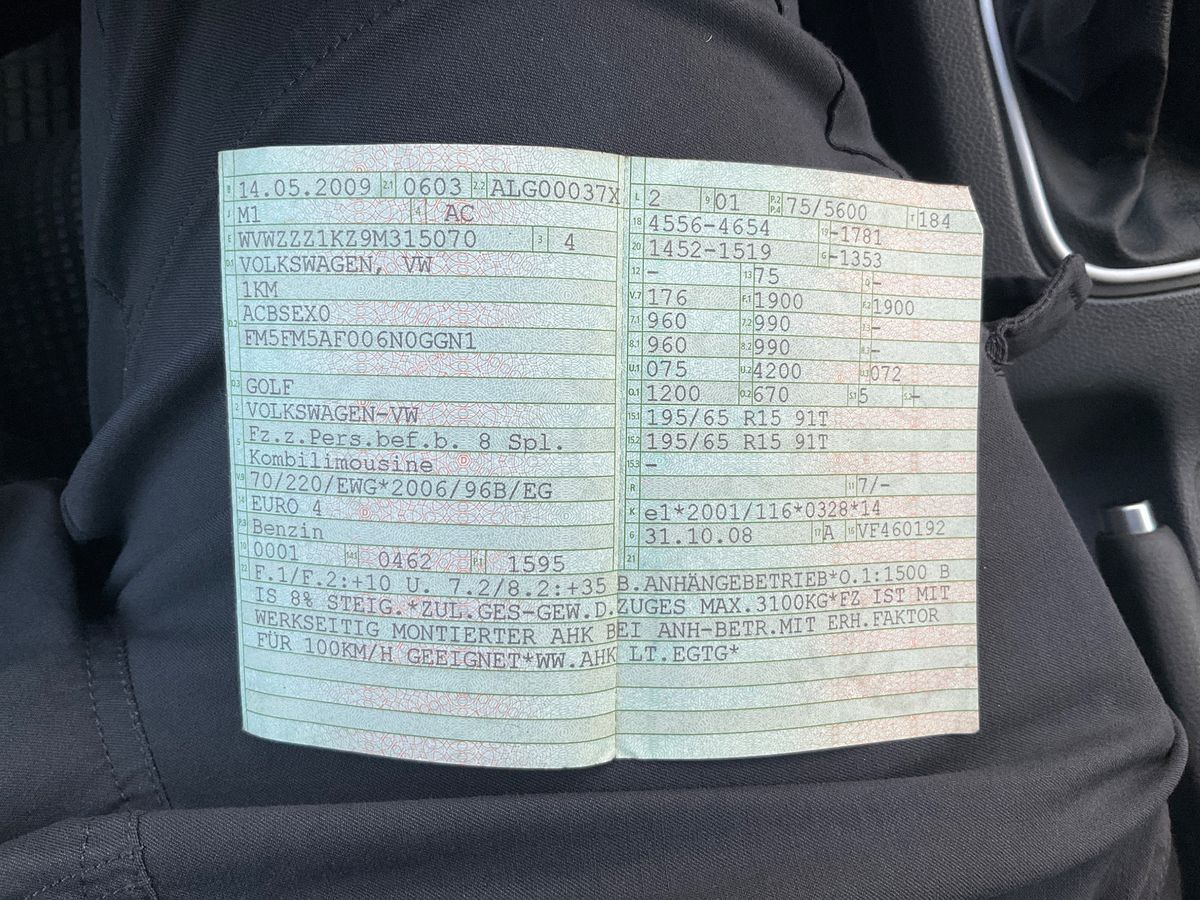 B 14.05.2009 2.1 0603 2.2 ALG00037X
J M1 4 AC
E WVWZZZ1KZ9M315070 3 4
D.1 VOLKSWAGEN, VW
1KM
D.2 ACBSEX0
FM5FM5AF006N0GGN1
D.3 GOLF
2 VOLKSWAGEN-VW
5 Fz.z.Pers.bef.b. 8 Spl.
Kombilimousine
V.9 70/220/EWG*2006/96B/EG
14 EURO 4
P.3 Benzin
10 0001 14.1 0462 P.1 1595
L 2 9 01 P.2 P.4 75/5600 T 184
18 4556-4654 19 -1781
20 1452-1519 G -1353
12 - 13 75 Q -
V.7 176 F.1 1900 F.2 1900
7.1 960 7.2 990 7.3 -
8.1 960 8.2 990 8.3 -
U.1 075 U.2 4200 U.3 072
O.1 1200 O.2 670 S.1 5 S.2 -
15.1 195/65 R15 91T
15.2 195/65 R15 91T
15.3 -
R 11 7/-
K e1*2001/116*0328*14
6 31.10.08 17 A 16 VF460192
21
22 F.1/F.2:+10 U. 7.2/8.2:+35 B.ANHÄNGEBETRIEB*O.1:1500 B
IS 8% STEIG.*ZUL.GES-GEW.D.ZUGES MAX.3100KG*FZ IST MIT
WERKSEITIG MONTIERTER AHK BEI ANH-BETR.MIT ERH.FAKTOR
FÜR 100KM/H GEEIGNET*WW.AHK LT.EGTG*